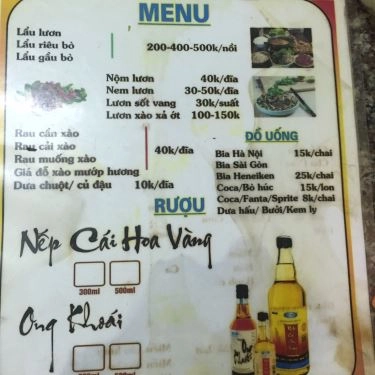 MENU
Lẩu lươn
Lẩu riêu bò
Lẩu gầu bò
200-400-500k/nồi
Nộm lươn 40k/đĩa
Nem lươn 30-50k/đĩa
Lươn sốt vang 30k/suất
Lươn xào xả ớt 100-150k
Rau cần xào
Rau cải xào
Rau muống xào
Giá đỗ xào mướp hương
40k/đĩa
Dưa chuột/ củ đậu 10k/đĩa
ĐỒ UỐNG
Bia Hà Nội 15k/chai
Bia Sài Gòn
Bia Heneiken 25k/chai
Coca/Bò húc 15k/lon
Coca/Fanta/Sprite 8k/chai
Dưa hấu/ Bưởi/Kem ly
RƯỢU
Nếp Cái Hoa Vàng
300ml 500ml
Ong Khoái